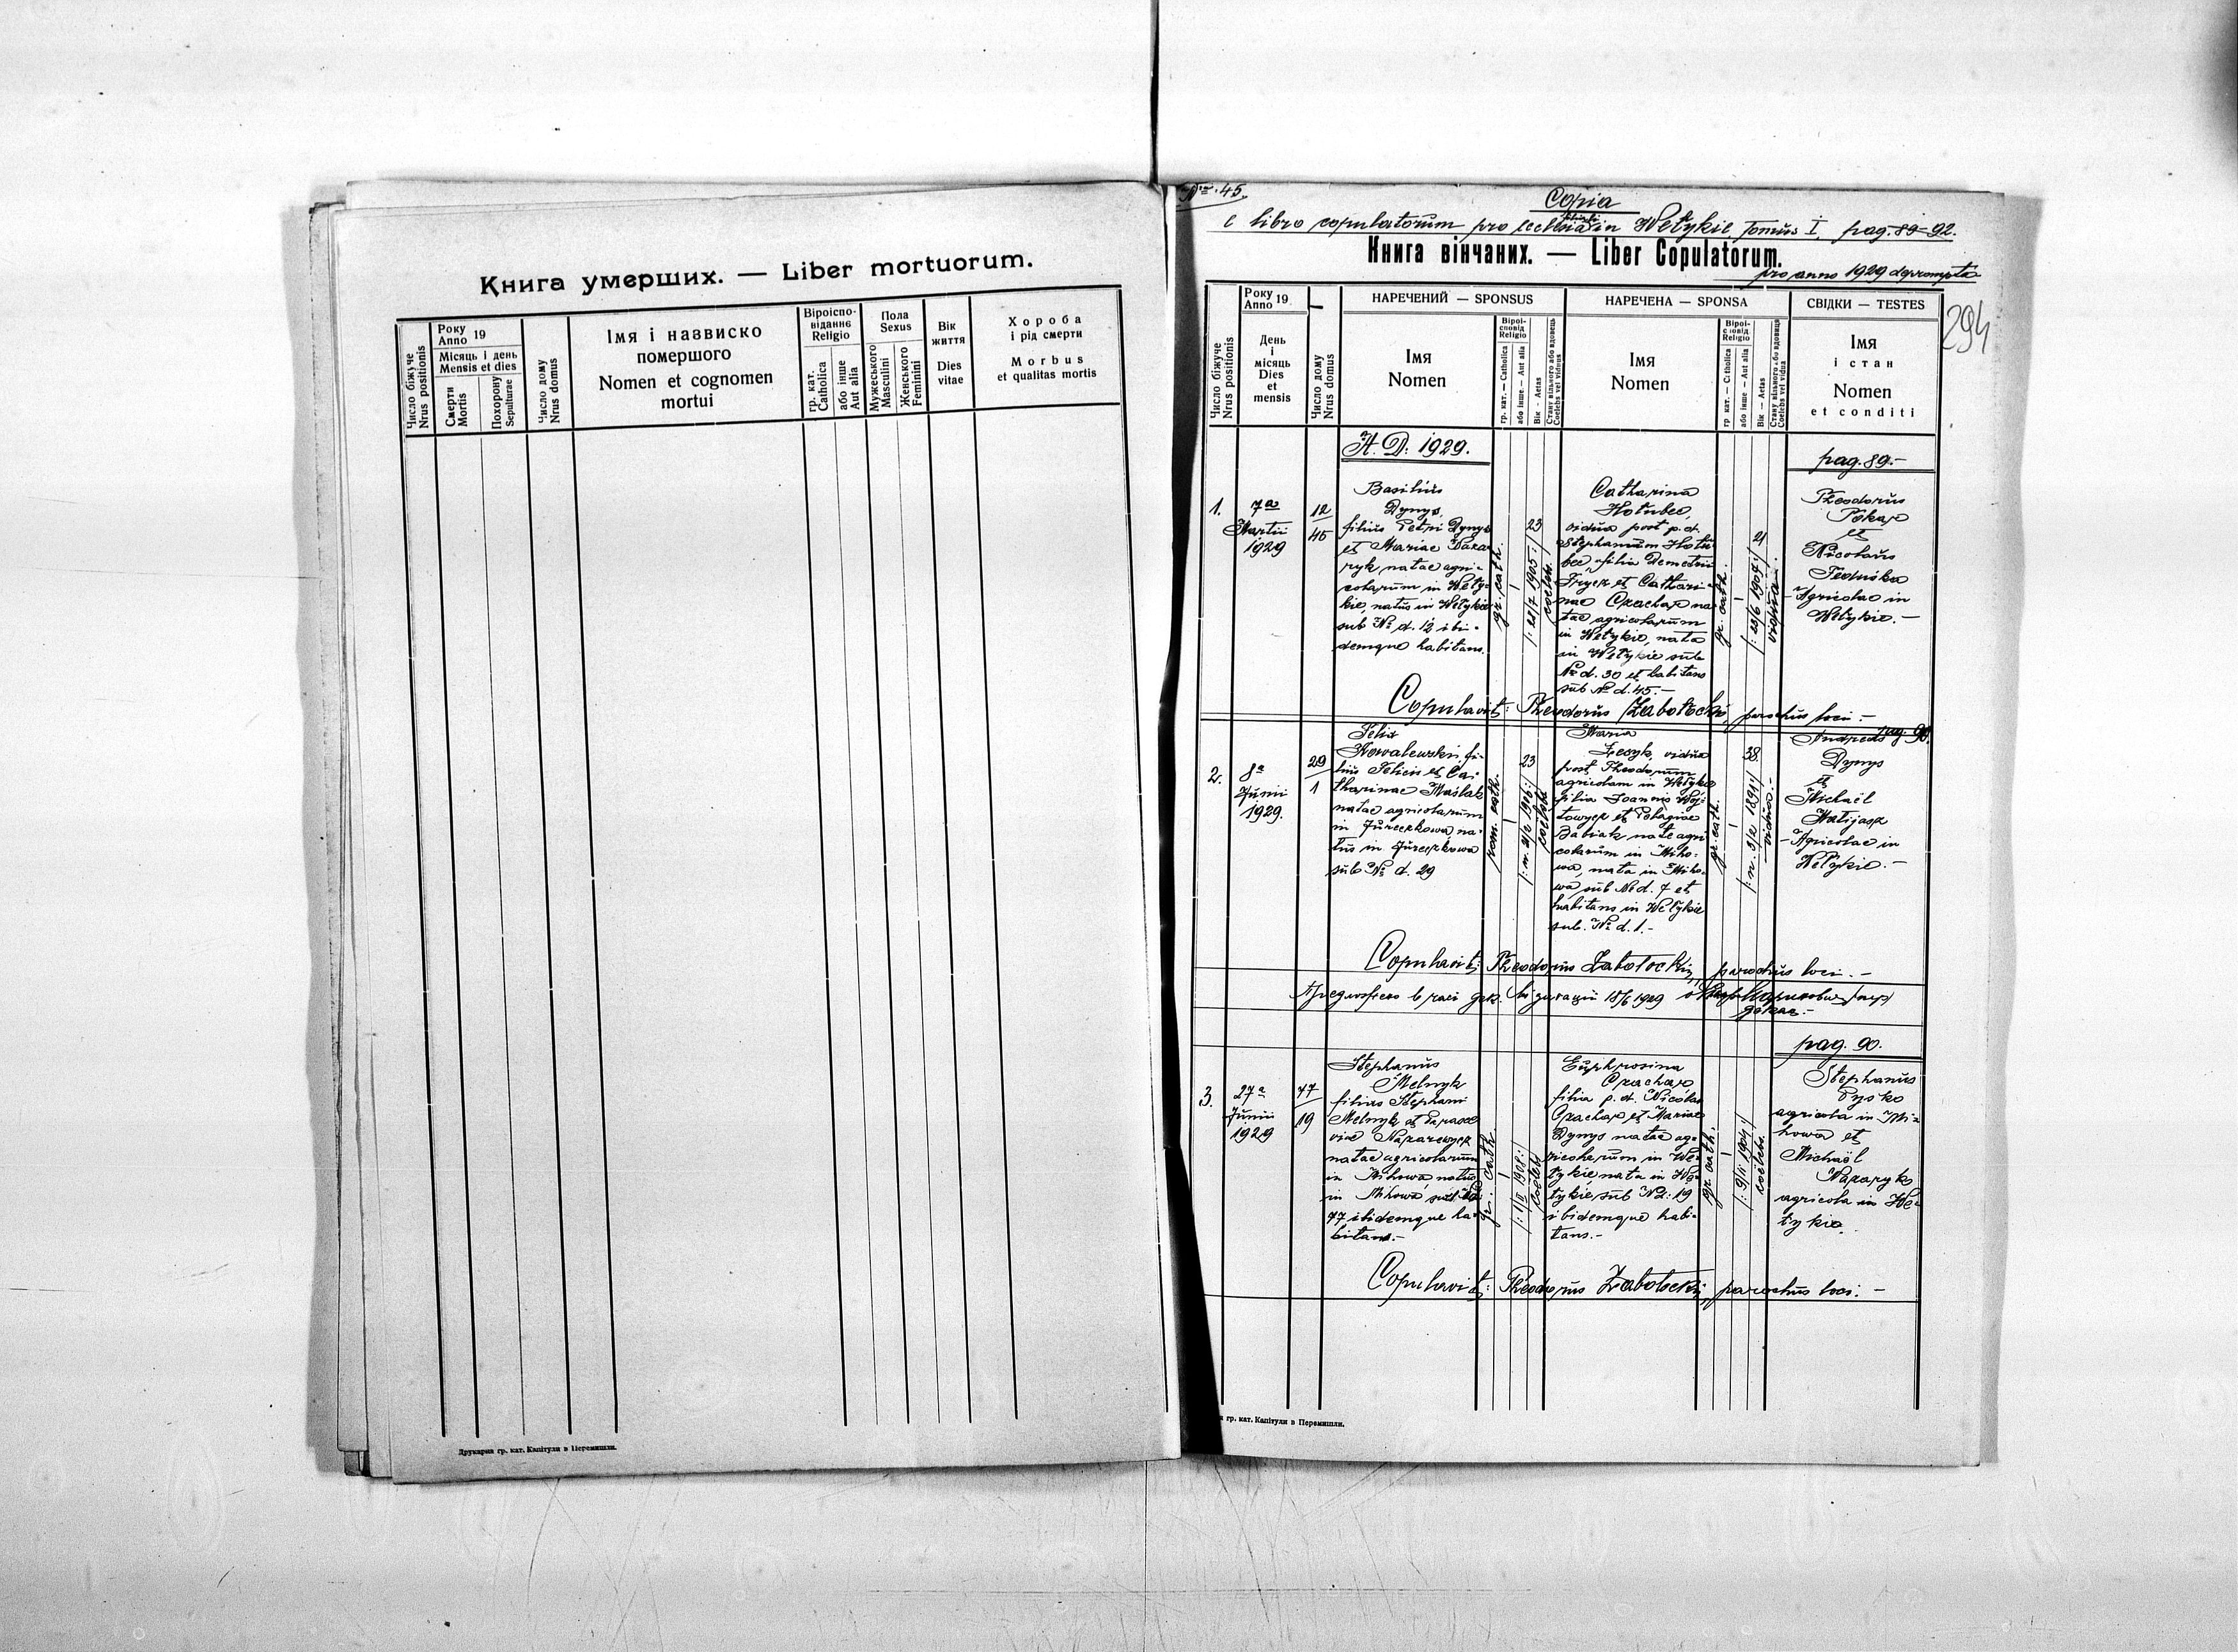 Книга умерших. — Liber mortuorum.
Число біжуче
Nrus positionis
Року
Anno 19
Місяць і день
Mensis et dies
Смерти
Mortis
Похорону
Sepulturae
Число дому
Nrus domus
Імя і назвиско
помершого
Nomen et cognomen
mortui
Віроіспо-
віданнє
Religio
гр. кат.
Catholica
або інше
Aut alia
Пола
Sexus
Мужеського
Masculini
Женського
Feminini
Вік
життя
Dies
vitae
Хороба
і рід смерти
Morbus
et qualitas mortis
Друкарня гр. кат. Капітули в Перемишли.
Nr. 45.
Copia
e libro copulatorum pro ecclesia in Wełykie, Tomus I, pag. 89-92.
Книга вінчаних. — Liber Copulatorum.
pro anno 1929 deprompta
294
Число біжуче
Nrus positionis
Року
Anno 19
День
і
місяць
Dies
et
mensis
Число дому
Nrus domus
НАРЕЧЕНИЙ — SPONSUS
Імя
Nomen
Віроі-
сповід
Religio
гр. кат. — Catholica
або інше. — Aut alia
Вік - Aetas
Стану вільного або вдовець
Coelebs vel viduus
НАРЕЧЕНА — SPONSA
Імя
Nomen
Віроі-
сповід
Religio
гр кат. — Catholica
або інше — Aut alia
Вік — Aetas
Стану вільного або вдовиця
Coelebs vel vidua
СВІДКИ — TESTES
Імя
і стан
Nomen
et conditi
A. D. 1929.
pag. 89.-
1.
7a
Martii
1929
12
45
Basilius
Dynys,
filius Petri Dynys
et Mariae
ryk natae agri-
colarum in Weły-
kie, natus in Wełykie
sub No d. 12 ibi-
demque habitans.
gr. cath.
23
/: 28/7 1905 :/
coelebs
Catharina
Hołubec,
vidua post p. d.
Stephanum Hołu-
bec, filia Demetrii
et Cathari-
nae Czachar na-
tae agricolarum
in Wełykie, nata
in Wełykie sub
No d. 30 et habitans
sub No d. 45.-
gr. cath.
21
vidua.
Theodorus
et
Nicolaus
Agricolae in
Wełykie.-
Copulavit: Theodorus Zabołockij, parochus loci.-
pag. 90.
2.
8a
Junii
1929.
29
1
Felix
Kowalewski, fi-
lius Felicis et Ca-
tharinae Maślak
natae agricolarum
in Jureczkowa na-
tus in Jureczkowa
sub No d. 29
rom. cath.
23
coelebs
Maria
Lesyk, vidua
post Theodorum
agricolam in Wełykie
filia Joannis Woj-
towycz et Pelagiae
Babiak nate agri-
colarum in Miho-
wa, nata in Miho-
wa sub No d. 7 et
habitans in Wełykie
sub. No d. 1.-
gr. cath.
38.
vidua.-
Andreas
Dynys
et
Michaël
Matijasz
- Agricolae in
Wełykie.-
Copulavit: Theodorus Zabołockij, parochus loci.-
18/6 1929
pag. 90.
3.
27a
Junii
1929
77
19
Stephanus
Melnyk
filius Stephani
Melnyk et Parasce-
viae
natae agricolarum
in Mihowa, natus
in Mihowa, sub No
77 ibidemque ha-
bitans.-
gr. cath.
coelebs
Euphrosina
Czachar,
filia p. d. Nicolai
Czachar et Mariae
Dynys natae ag-
ricolarum in We-
łykie, nata in We-
łykie, sub Nd: 19
ibidemque habi-
tans.-
gr. cath.
coelebs.
Stephanus
Pysko
agricola in Mi-
howa et
Michaël
agricola in We-
łykie.
Copulavit: Theodorus Zabołockij, parochus loci.-
гр. кат. Капітули в Перемишли.